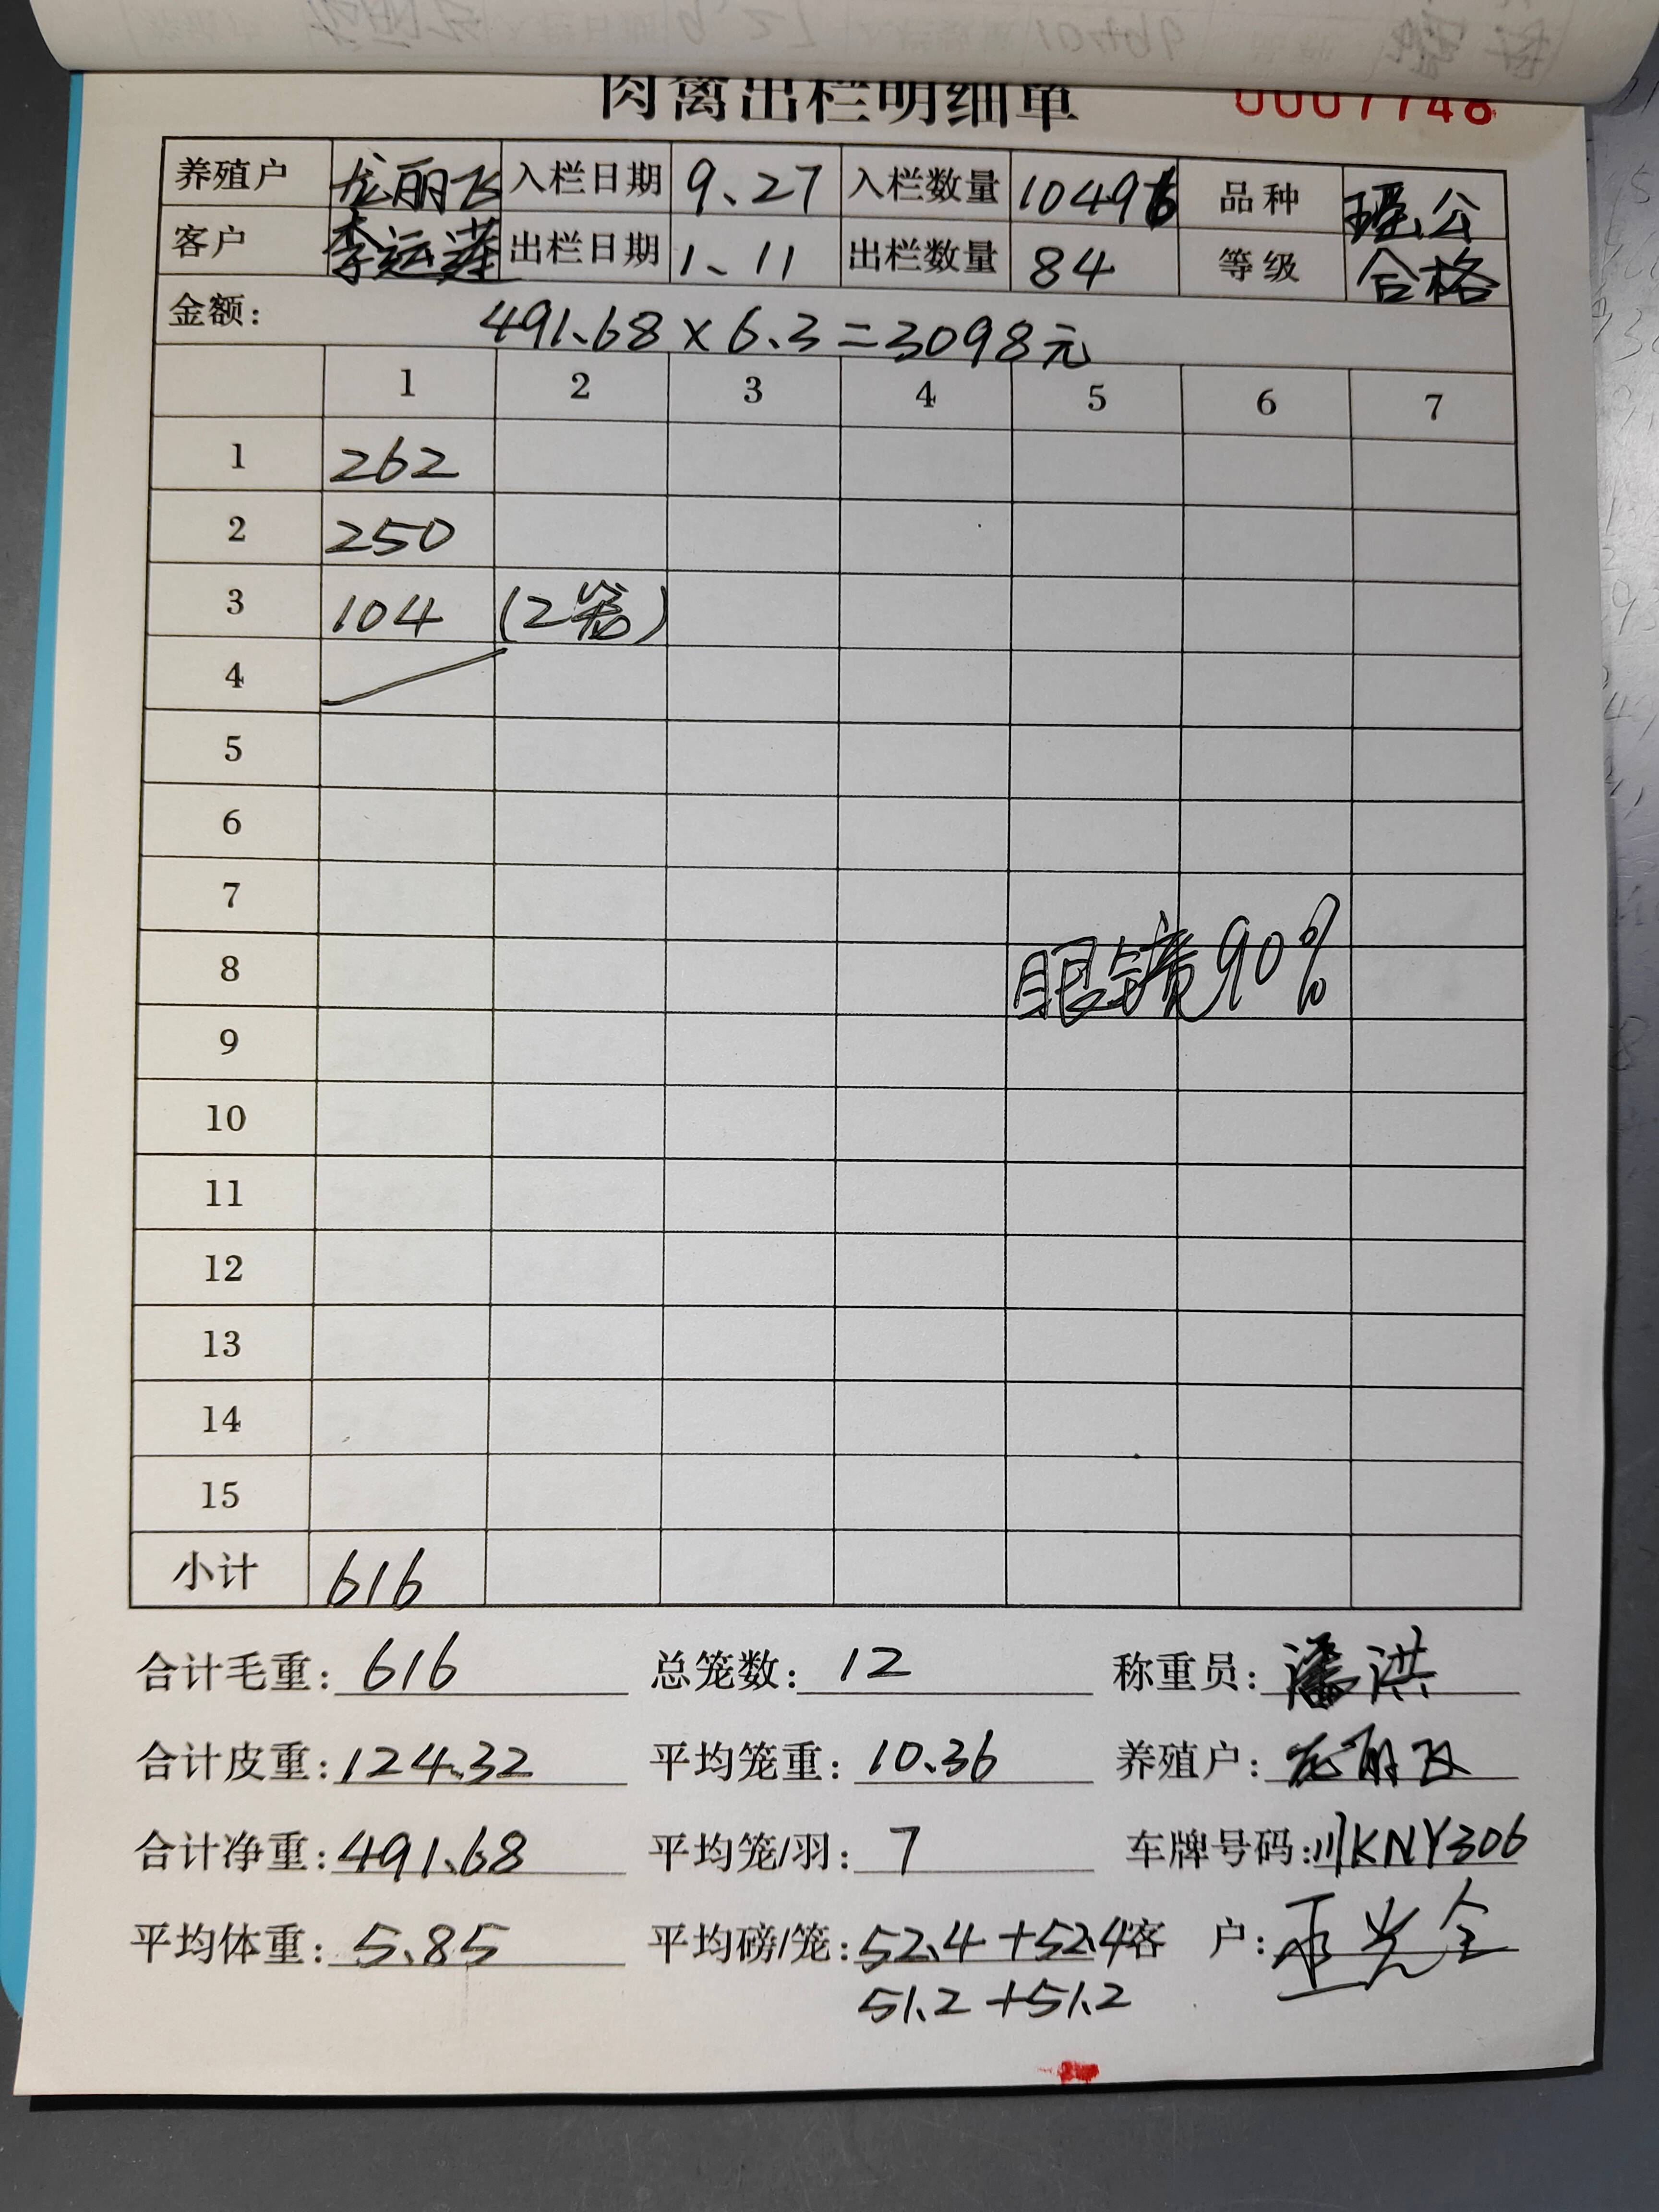 肉禽出栏明细单 0007748
养殖户 龙丽飞 入栏日期 9、27 入栏数量 10496 品种 瑶公
客户 李运莲 出栏日期 1、11 出栏数量 84 等级 合格
金额: 491.68×6.3=3098元
1 2 3 4 5 6 7
1 262
2 250
3 104 (2笼)
4
5
6
7
8 眼镜90%
9
10
11
12
13
14
15
小计 616
合计毛重: 616 总笼数: 12 称重员: 潘洪
合计皮重: 124.32 平均笼重: 10.36 养殖户: 龙丽飞
合计净重: 491.68 平均笼/羽: 7 车牌号码: 川KNY306
平均体重: 5.85 平均磅/笼: 52.4+52.4 客 户:
51.2+51.2